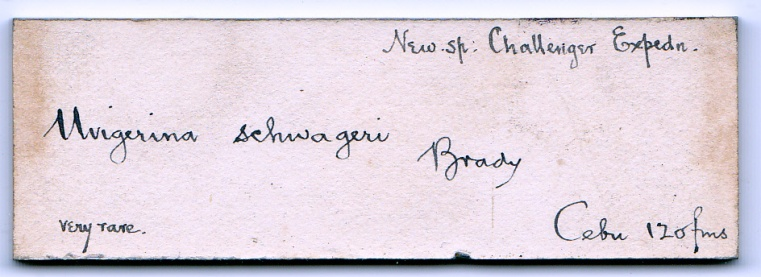 New. sp: Challenger Expedn.
Uvigerina schwageri
Brady
very rare.
Cebu 120 fms